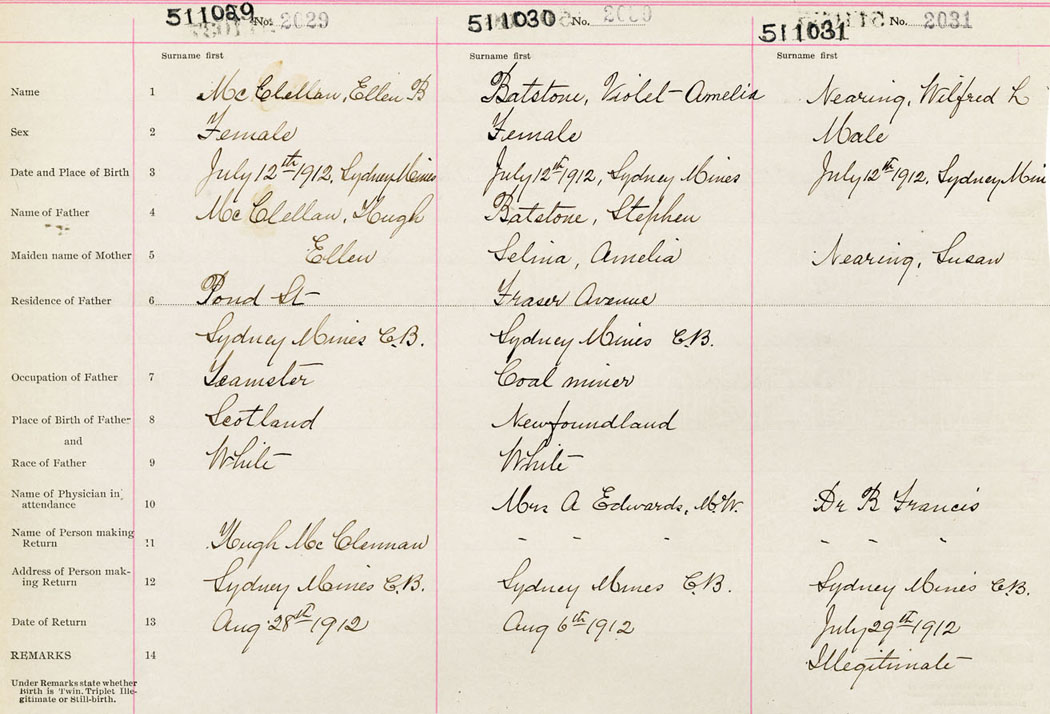 511029 No. 2029 511030 No. 2030 511031 No. 2031
Surname first Surname first Surname first
Name 1 McClellan, Ellen B Batstone, Violet-Amelia Nearing, Wilfred L
Sex 2 Female Female Male
Date and Place of Birth 3 July 12th 1912, Sydney Mines July 12th 1912, Sydney Mines July 12th 1912, Sydney Min
Name of Father 4 McClellan, Hugh Batstone, Stephen
Maiden name of Mother 5 Ellen Selina, Amelia Nearing, Susan
Residence of Father 6 Pond St Fraser Avenue
Sydney Mines C.B. Sydney Mines C.B.
Occupation of Father 7 Teamster Coal miner
Place of Birth of Father 8 Scotland Newfoundland
and
Race of Father 9 White White
Name of Physician in
attendance 10 Mrs A Edwards, M.W. Dr B Francis
Name of Person making
Return 11 Hugh McClennan - - - - - -
Address of Person mak-
ing Return 12 Sydney Mines C.B. Sydney Mines C.B. Sydney Mines C.B.
Date of Return 13 Aug 28th 1912 Aug 6th 1912 July 29th 1912
REMARKS 14 Illegitimate
Under Remarks state whether
Birth is Twin, Triplet Ille-
gitimate or Still-birth.